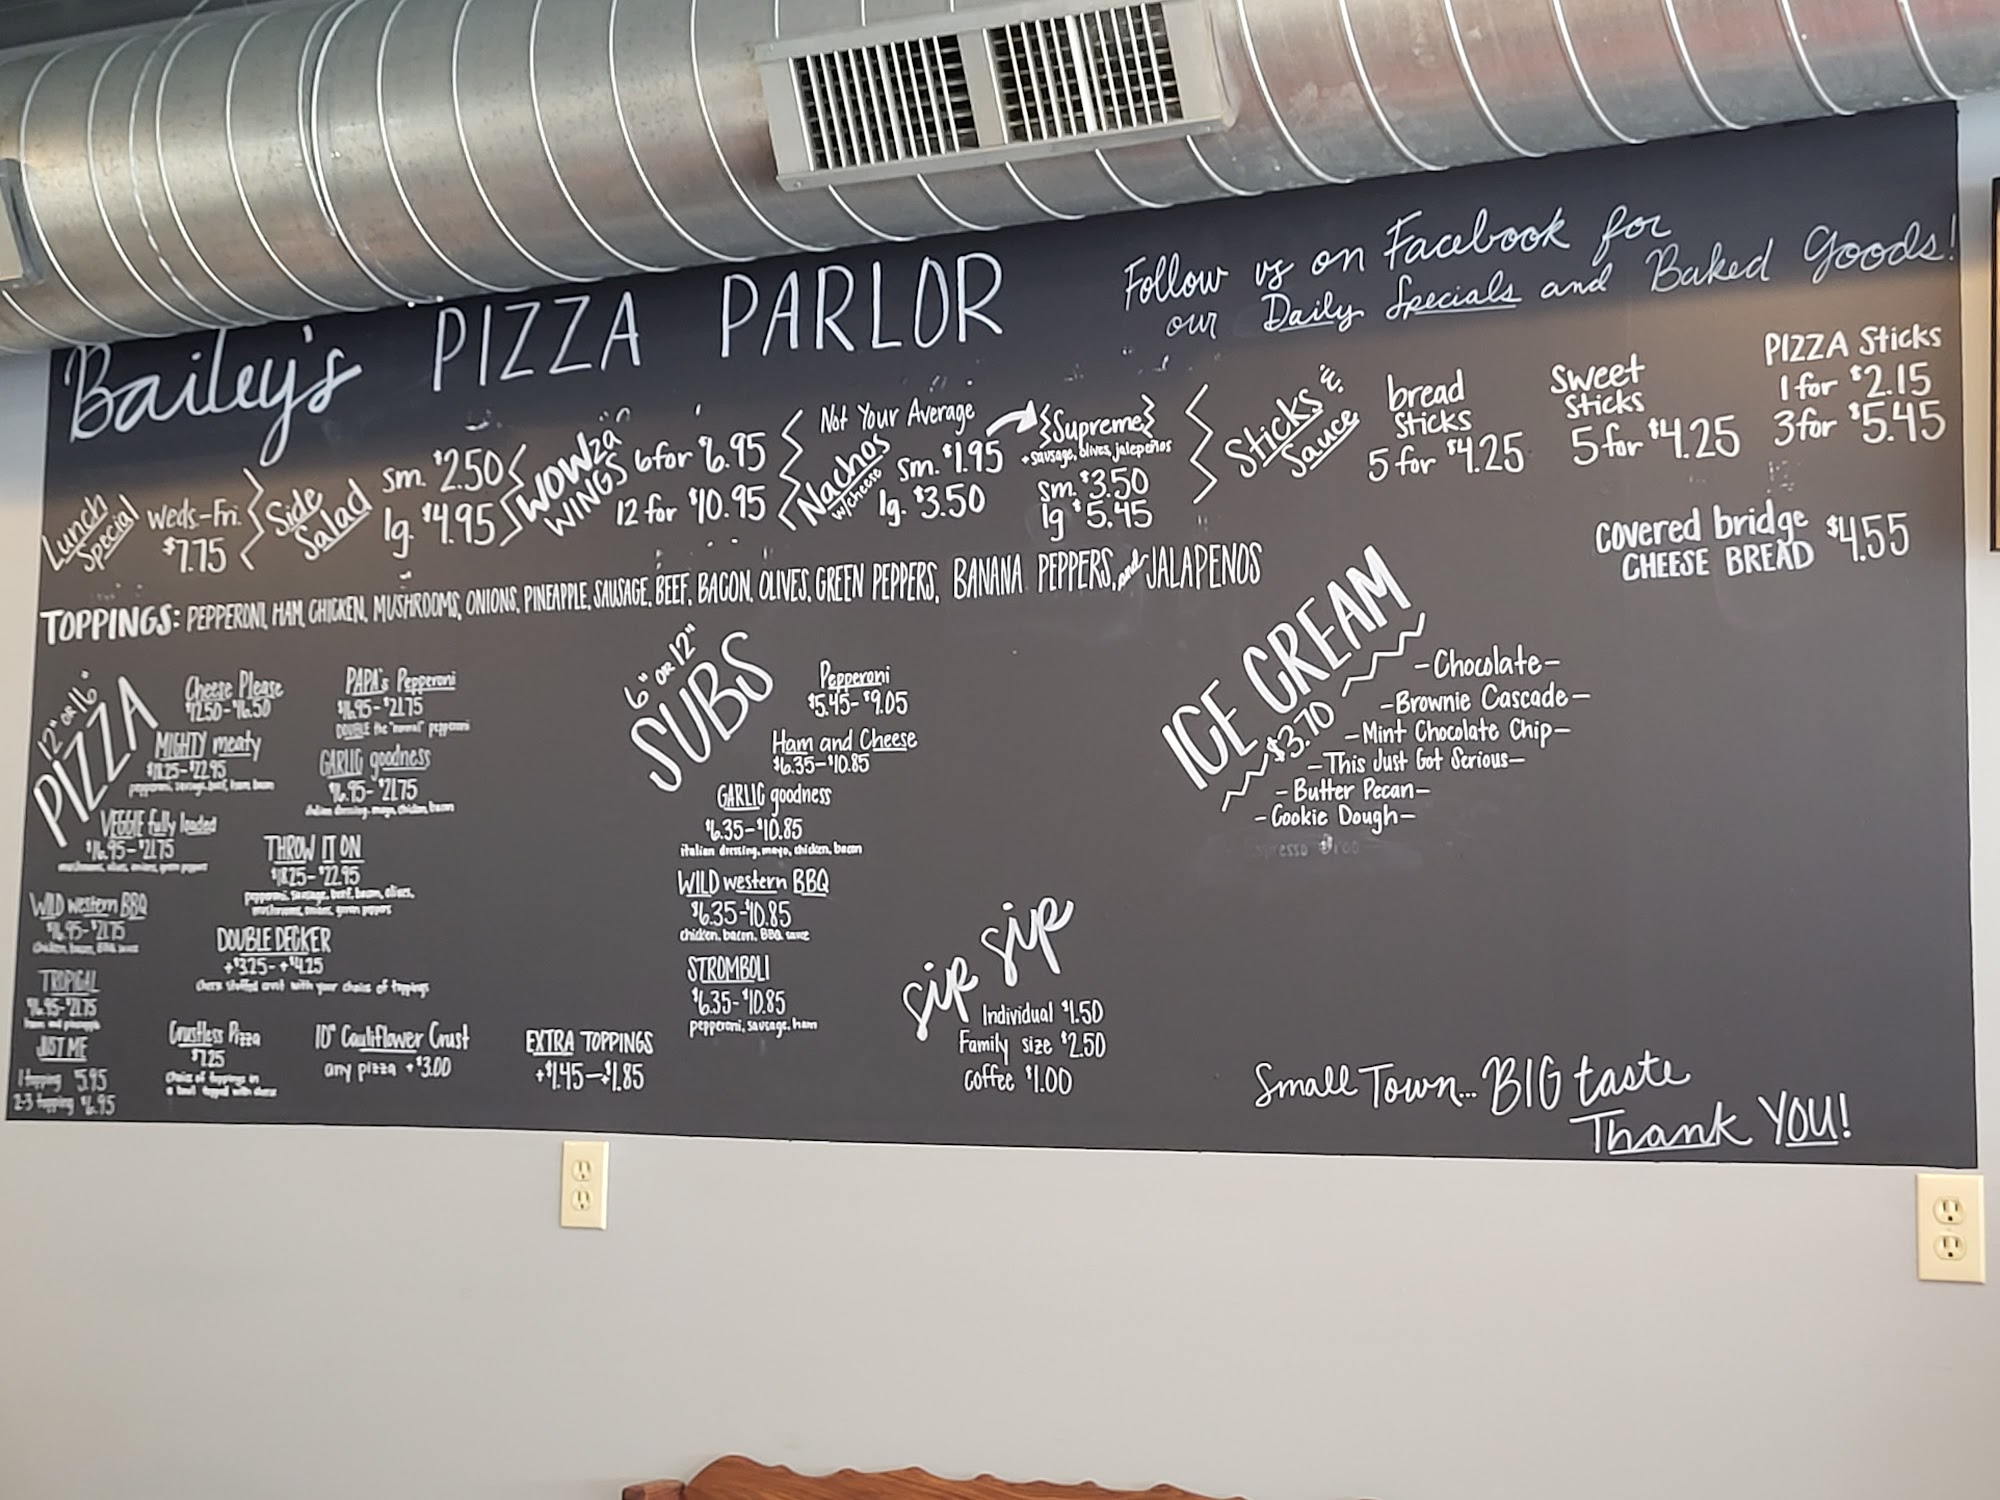 Bailey's PIZZA PARLOR
Follow us on Facebook for
our Daily Specials and Baked Goods!
Lunch Special
Weds.-Fri.
$7.75
Side Salad
sm. $2.50
lg. $4.95
WOWza WINGS
6 for $6.95
12 for $10.95
Not Your Average
Nachos
w/cheese
sm. $1.95
lg. $3.50
{Supreme}
+ sausage, olives, jalepeños
sm. $3.50
lg $5.45
Sticks & Sauce
bread
Sticks
5 for $4.25
Sweet
Sticks
5 for $4.25
PIZZA Sticks
1 for $2.15
3 for $5.45
covered bridge
CHEESE BREAD $4.55
TOPPINGS: PEPPERONI, HAM, CHICKEN, MUSHROOMS, ONIONS, PINEAPPLE, SAUSAGE, BEEF, BACON, OLIVES, GREEN PEPPERS, BANANA PEPPERS, and JALAPENOS
12" OR 16"
PIZZA
Cheese Please
$12.50-$16.50
MIGHTY meaty
$18.25-$22.95
pepperoni, sausage, beef, ham, bacon
VEGGIE fully loaded
$16.95-$21.75
mushrooms, olives, onions, green peppers
WILD western BBQ
$16.95-$21.75
chicken, bacon, BBQ sauce
TROPICAL
$16.95-$21.75
ham and pineapple
JUST ME
1 topping $5.95
2-3 topping $6.95
PAPA's Pepperoni
$16.95-$21.75
DOUBLE the "normal" pepperoni
GARLIC goodness
$16.95-$21.75
italian dressing, mayo, chicken, bacon
THROW IT ON
$18.25-$22.95
pepperoni, sausage, beef, bacon, olives,
mushrooms, onions, green peppers
DOUBLE DECKER
+$3.25-+$4.25
cheese stuffed crust with your choice of toppings
Crustless Pizza
$7.25
choice of toppings in
a bowl topped with cheese
10" Cauliflower Crust
any pizza + $3.00
EXTRA TOPPINGS
+$1.45-+$1.85
6" OR 12"
SUBS
Pepperoni
$5.45-$9.05
Ham and Cheese
$6.35-$10.85
GARLIC goodness
$6.35-$10.85
italian dressing, mayo, chicken, bacon
WILD western BBQ
$6.35-$10.85
chicken, bacon, BBQ sauce
STROMBOLI
$6.35-$10.85
pepperoni, sausage, ham
sip sip
Individual $1.50
Family size $2.50
Coffee $1.00
ICE CREAM
$3.70
-Chocolate-
-Brownie Cascade-
-Mint Chocolate Chip-
-This Just Got Serious-
-Butter Pecan-
-Cookie Dough-
Small Town... BIG taste
Thank YOU!